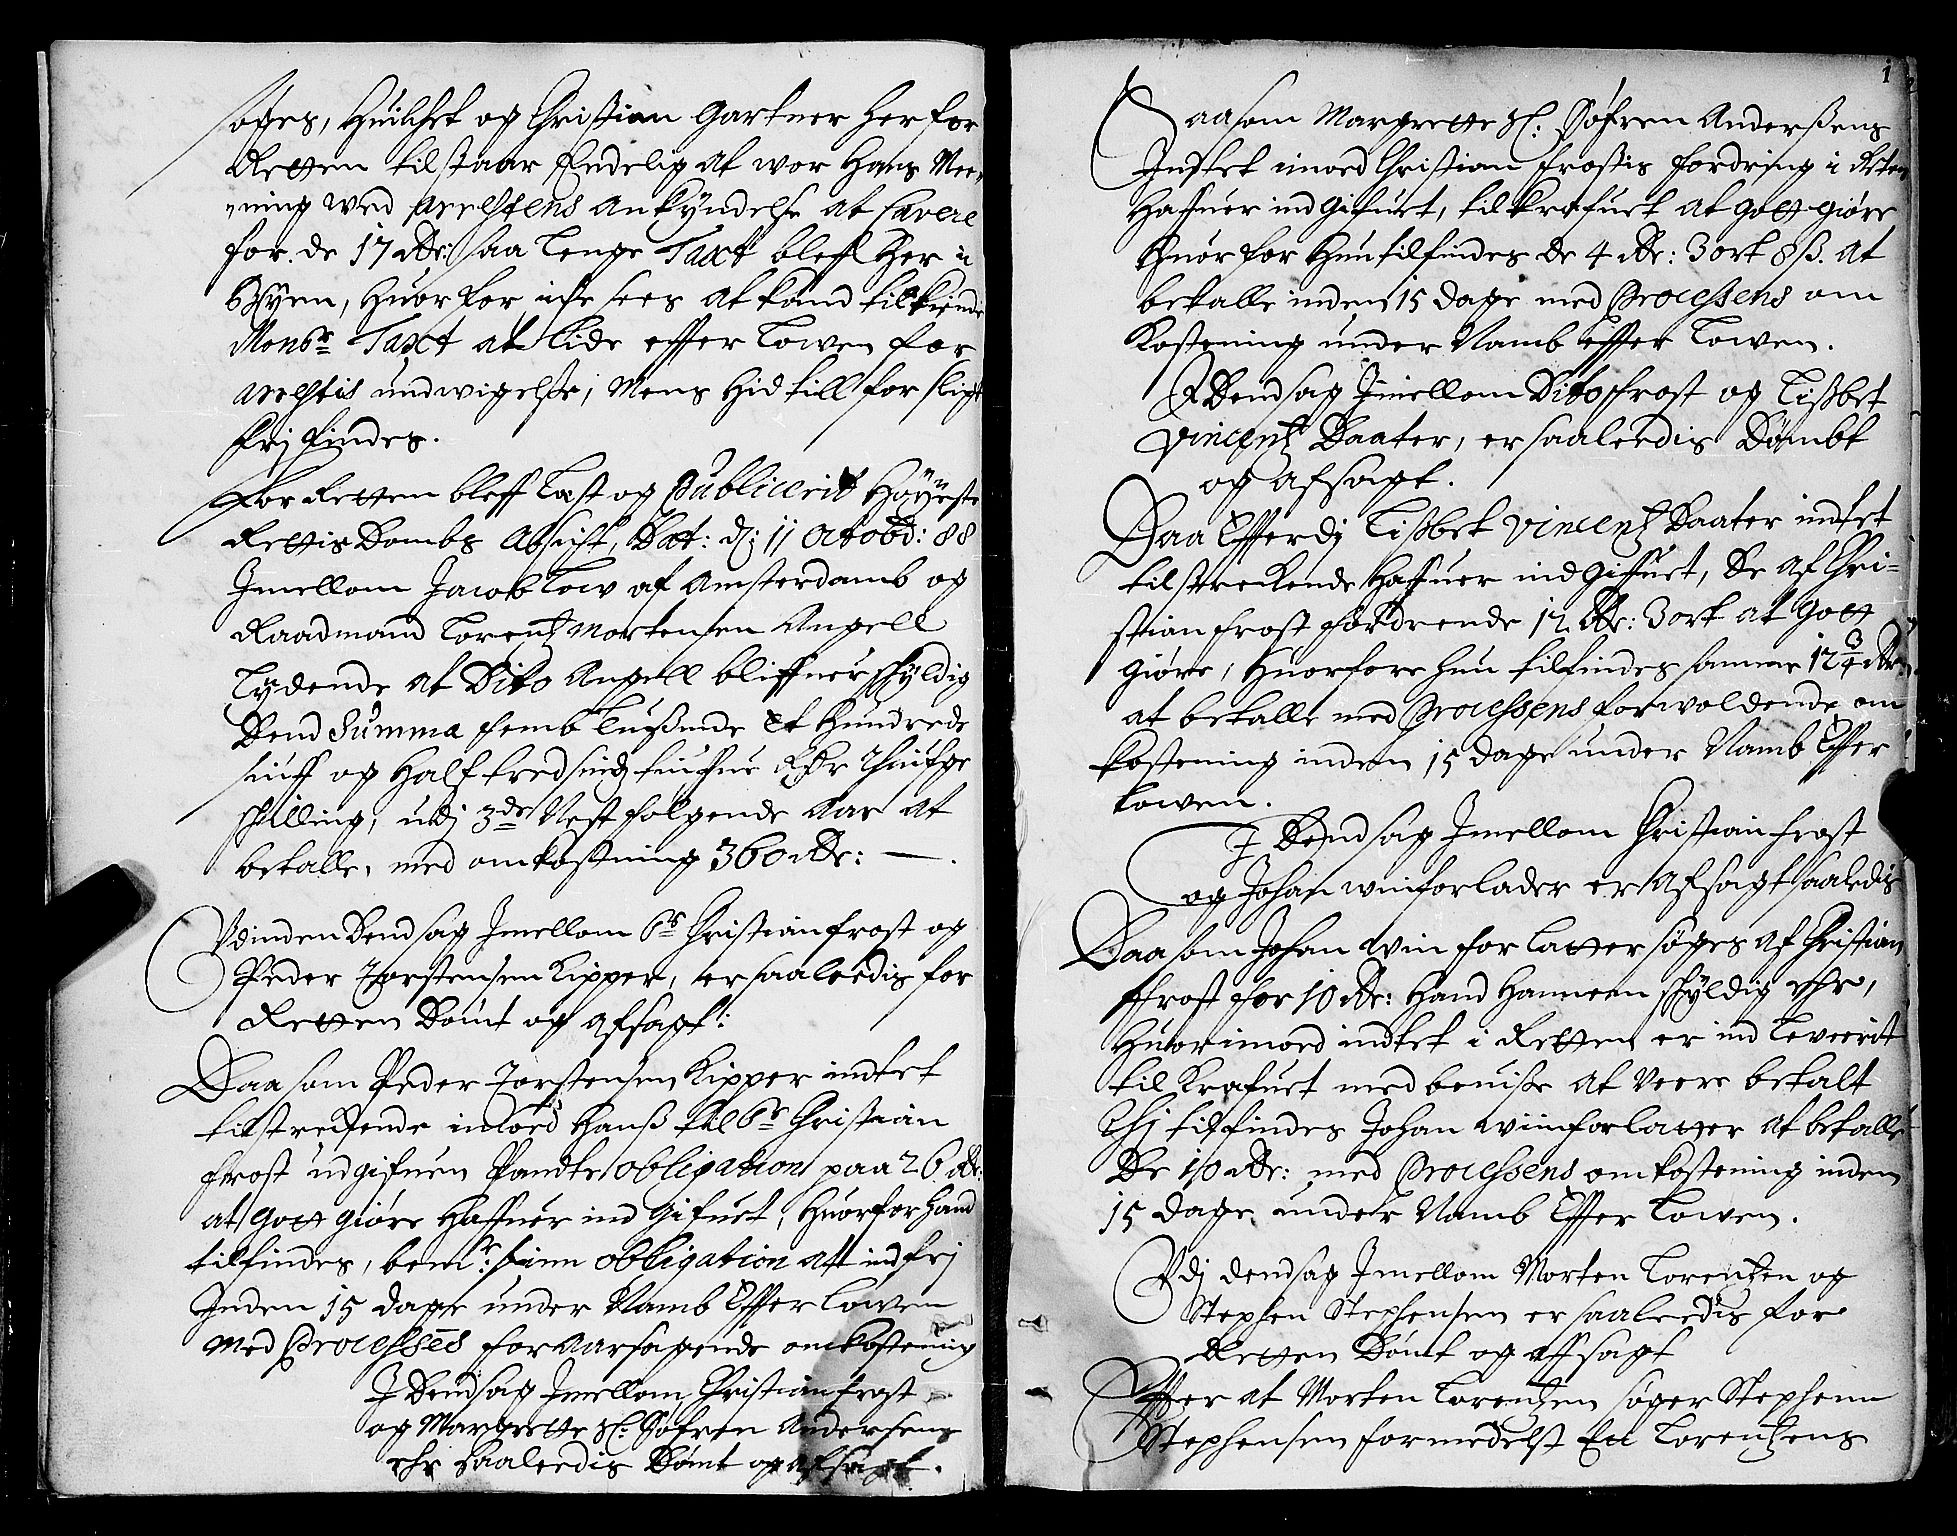 søges, Huilchet og Christian Gartner her for
Retten tilstaar Endelig at wor Hans Mee-
ning wed arrestens ankyndelse at Cavere
for de 17 Rdr: saa lenge Taxt bleff her i
Byen, huorfor iche sees at kand tilkiende
Monsr Taxt at lide effter Lowen for
arrestis undwigelse, mens hid till for sligt
frj findes.
For Retten bleff læst og Publicerit Høyeste
Rettis Dombs Afsicht, Dat: d: 11 Octobr: 88
Jmellom Jacob Low af Amsterdamb og
Raadmand Lorentz Mortensen Angell
Lydende at Dito Angell bliffuer schyldig
Dend Summa femb tusende Et Hundrede
siuff og Half tredsindstiuffue Rdr Thiufge
schilling, udj 3de Nest folgende Aar at
betalle, med omkostning 360 Rdr: —.
Udinden Dend sag Jmellom Sr Christian Frost og
Peder Torstensen Kipper, er saaleedis for
Retten Dømt og afsagt:
Daa som Peder Torstensen Kipper indtet
tilstreckende imod Hanß til Sr Christian
Frost udgifuen Pandte obligation paa 26 Rdr:
at Gott giøre Haffuer ind Gifuet, Huorfor hand
tilfindes, bemte: sinn obligation att indfrj
Jnden 15 dage under Namb Effter Lowen
med Processens foraarsagende omkostening
J Dend sag Jmellom Christian Frost
og Margrette Sl: Søfren Andersens
ehr Saaleedis Dømt og afsagt.
1
Daasom Margrette Sl: Søfren Anderßens
Jntet imod Christian Frostis fordring i Retten
Haffuer ind Gifuet, tilkrafuet at Gott giøre
Huorfor Hun tilfindes De 4 Rdr: 3 ort 8 ß. at
betalle inden 15 dage med Processens om
Kostening under Namb effter Lowen.
J Dend sag Jmellom Dito Frost og Lißbet
Vincentz Daater, er saaleedis Dømbt
og afsagt.
Daa Effterdj Lißbet Vincentz Daater indtet
tilstreckende Haffuer ind Giffuet, De af Chri-
stian Frost fordrende 12 Rdr: 3 ort at Gott
Giøre, Huorfore hun tilfindes samme 12 3/4 Rdr:
at betalle med Processens forwoldende om
kostening inden 15 dage under Namb Effter
Lowen.
J Dend sag Jmellom Christian Frost
og Johan wiinforlader er afsagt saaledis
Daa som Johan wiin for latter søges af Christian
Frost for 10 Rdr: Hand Hannem schyldig ehr,
Huorimoed indtet i Retten er ind Leverit
til Krafuet med beuise at Veere betalt
Thj tilfindes Johan wiinforlatter at betalle
De 10 Rdr: med Processens omkostening inden
15 dage under Namb Effter Lowen.
Udj dend sag Jmellom Morten Lorentzen og
Stephen Stephensen er saaleedis for
Retten Dømt og affsagt
Effter at Morten Lorentzen søger Stephenn
Stephensen formedelst En Lorentzens